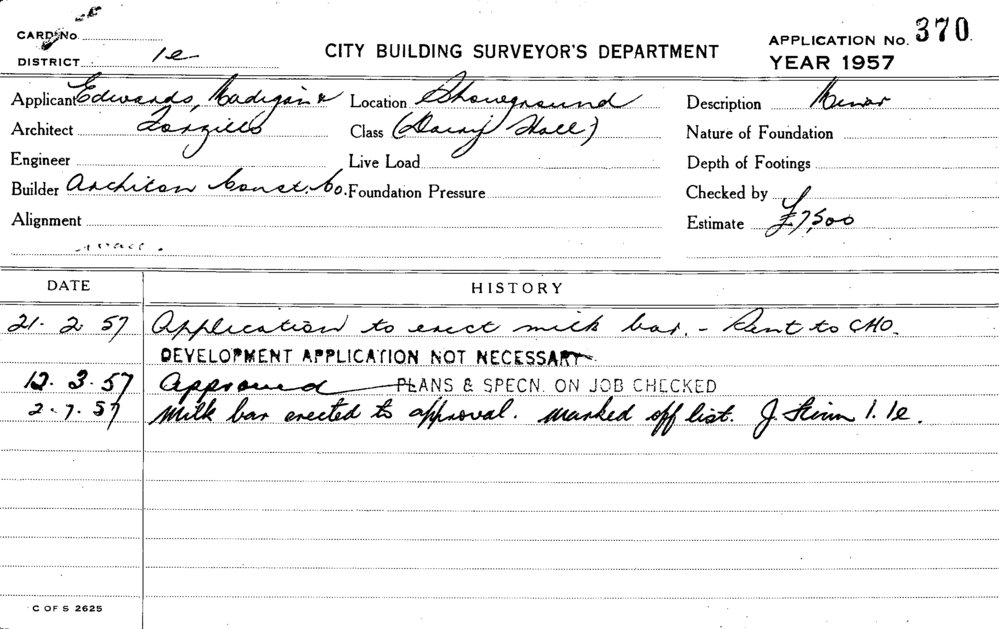 CARD No.
DISTRICT 1e
CITY BUILDING SURVEYOR'S DEPARTMENT
APPLICATION No. 370
YEAR 1957
Applicant Edwards, Madigan &
Architect Torzillo
Engineer
Builder Architon Const. Co.
Alignment
Location Showground
Class (Dairy Hall)
Live Load
Foundation Pressure
Description Minor
Nature of Foundation
Depth of Footings
Checked by
Estimate £7,500
DATE HISTORY
21. 2. 57 Application to erect milk bar. - Sent to CHO.
DEVELOPMENT APPLICATION NOT NECESSARY
12. 3. 57 Approved PLANS & SPECN. ON JOB CHECKED
2. 7. 57 Milk bar erected to approval. Marked off list. J. 1. 1e.
C OF S 2625